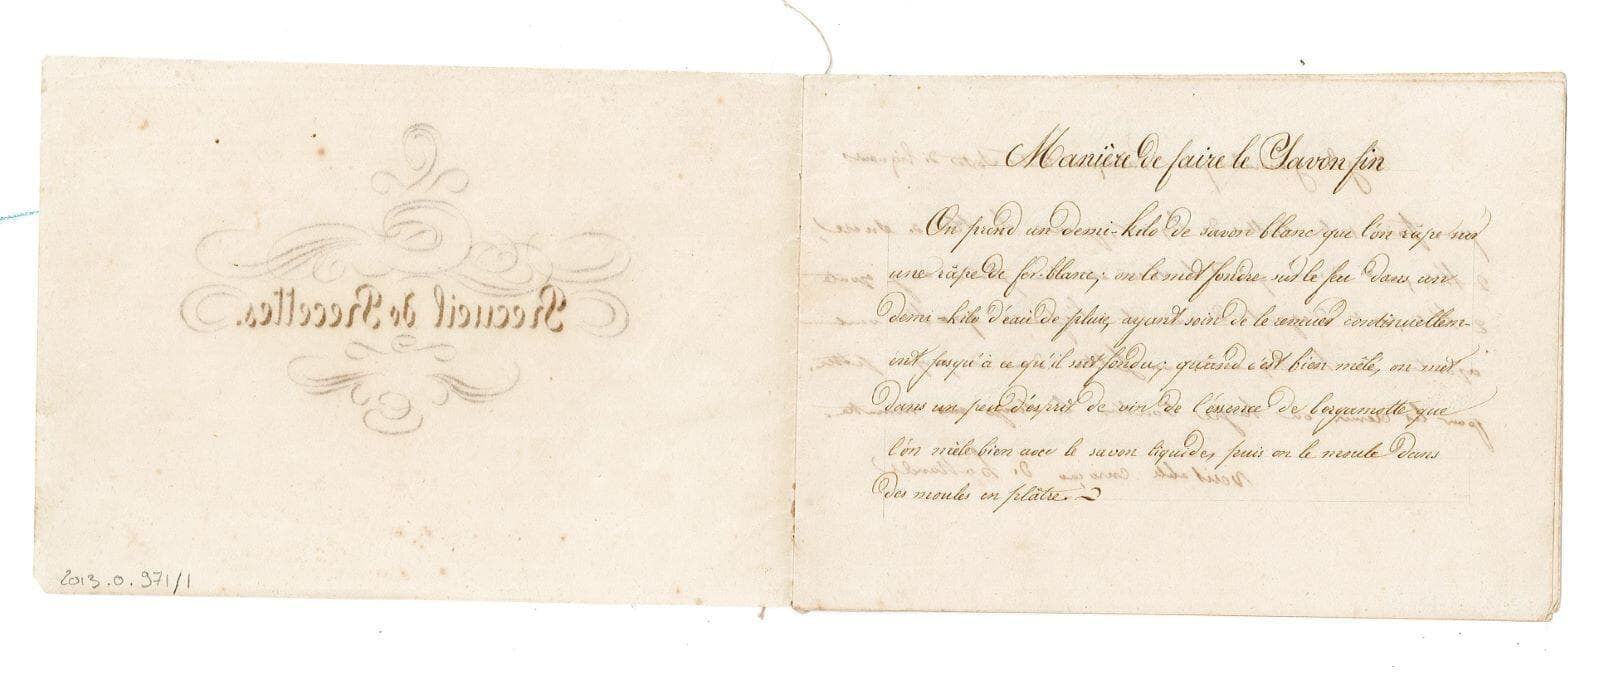 Recueil de Recettes.
2013.0.971/1
Manière de faire le Savon fin
On prend un demi-kilo de savon blanc que l'on râpe sur
une râpe de fer-blanc; on le met fondre sur le feu dans un
demi-kilo d'eau de pluie, ayant soin de le remuer continuellem-
ent jusqu'à ce qu'il soit fondu; quand c'est bien mêlé, on met
dans un peu d'esprit de vin de l'éssence de bergamotte que
l'on mêle bien avec le savon liquide, puis on le moule dans
des moules en plâtre.